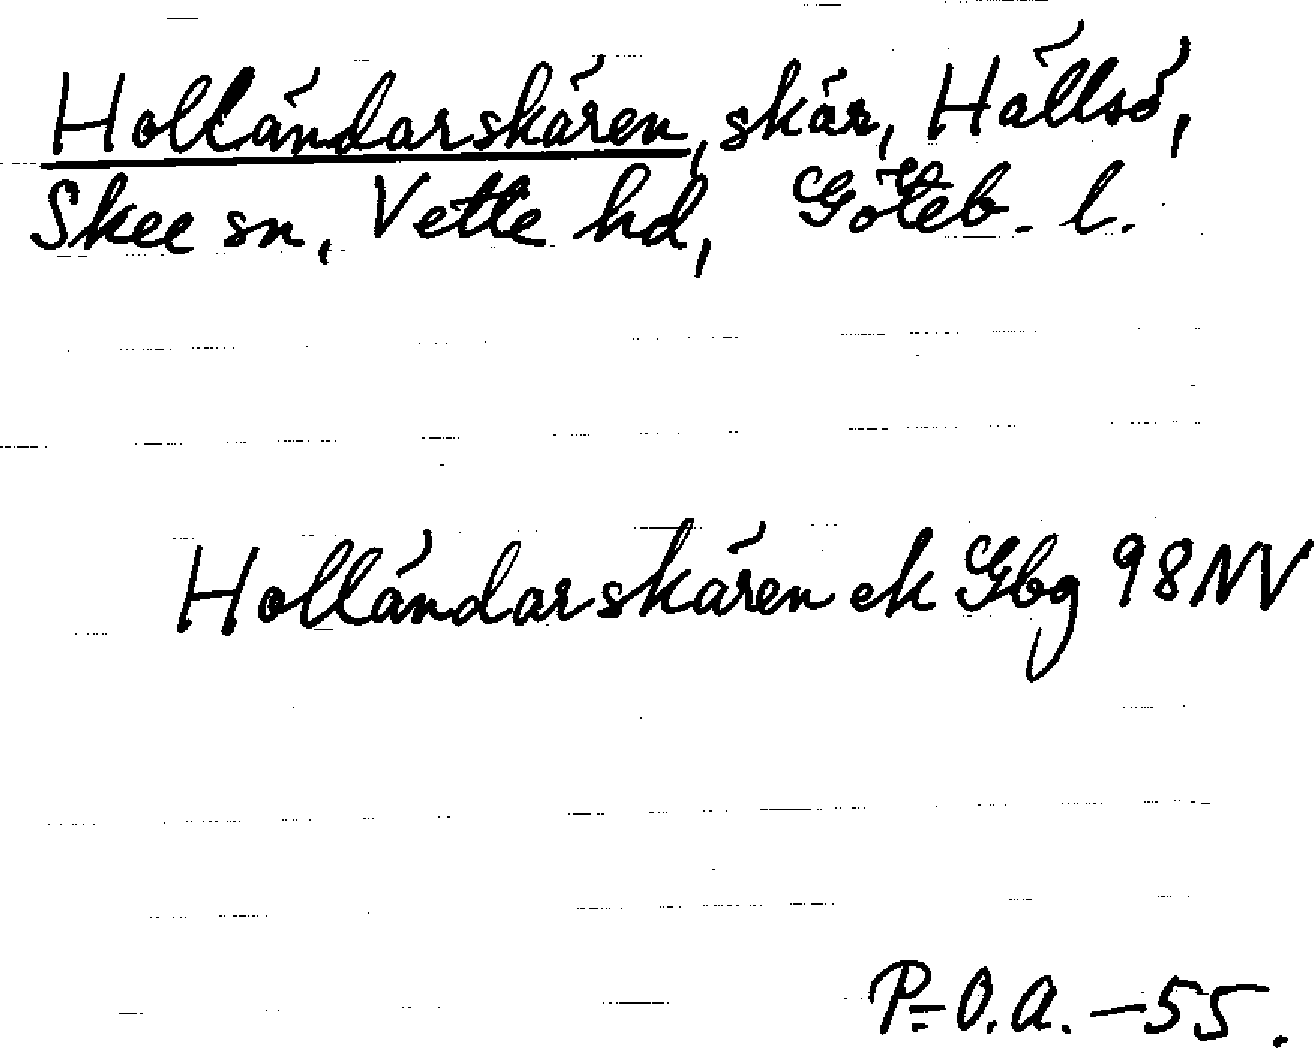 Holländarskären, skär, Hällsö,
Skee sn, Vette hd, Göteb. l.
Holländarskären ek Gbg 98 NV
P.-O.A. -55.